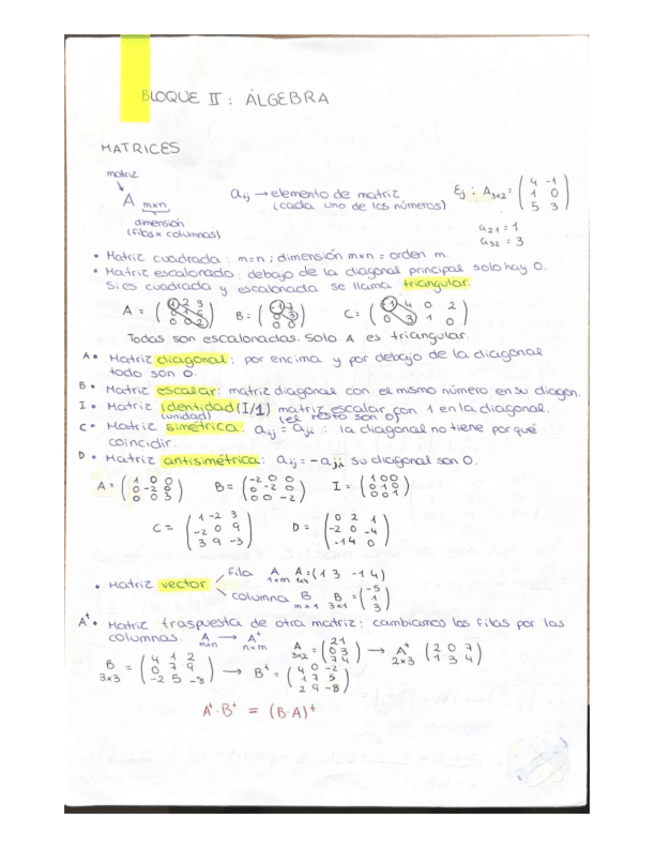 BLOQUE II: ÁLGEBRA
MATRICES
matriz
A m×n
dimensión
(filas x columnas)
aij → elemento de matriz
(cada uno de los números)
Ej: A3×2 = ( 4 -1
1 0
5 3 )
a21 = 1
a32 = 3
• Matriz cuadrada: m=n; dimensión m×n = orden m.
• Matriz escalonada: debajo de la diagonal principal solo hay 0.
Si es cuadrada y escalonada se llama triangular.
A = ( 1 2 3
0 0 2 ) B = ( -1
0 3
0 0 ) C = ( -1 4 0 2
0 3 1 0 )
Todas son escalonadas. Solo A es triangular.
A • Matriz diagonal: por encima y por debajo de la diagonal
todo son 0.
B • Matriz escalar: matriz diagonal con el mismo número en su diagon.
I • Matriz identidad (I/1) matriz escalar con 1 en la diagonal.
(unidad) (el resto son 0)
C • Matriz simétrica: aij = aji : la diagonal no tiene por qué
coincidir.
D • Matriz antisimétrica: aij = -aji su diagonal son 0.
A = ( 1 0 0
0 -2 0
0 0 3 ) B = ( -2 0 0
0 -2 0
0 0 -2 ) I = ( 1 0 0
0 1 0
0 0 1 )
C = ( 1 -2 3
-2 0 9
3 9 -3 ) D = ( 0 2 1
-2 0 -4
-1 4 0 )
• Matriz vector
fila A 1×m A 1×4 = ( 1 3 -1 4 )
columna B m×1 B 3×1 = ( -5
1
3 )
At • Matriz traspuesta de otra matriz: cambiamos las filas por las
columnas. A m×n → At n×m A 3×2 = ( 2 1
0 3
7 4 ) → At 2×3 ( 2 0 7
1 3 4 )
B 3×3 = ( 4 1 2
0 7 9
-2 5 -8 ) → Bt = ( 4 0 -2
1 7 5
2 9 -8 )
At · Bt = (B·A)t